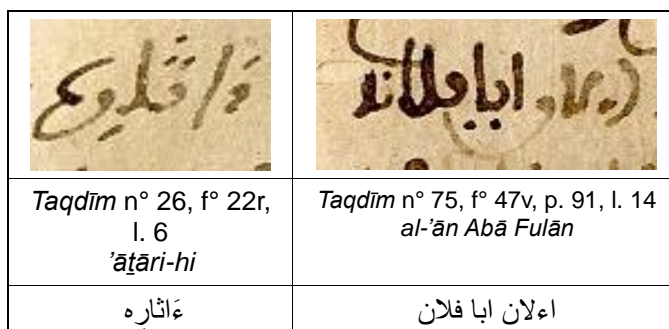 ابا فلان
Taqdīm n° 26, f° 22r,
l. 6
'āṯāri-hi
Taqdīm n° 75, f° 47v, p. 91, l. 14
al-'ān Abā Fulān
ءَاثارِه
اءلان ابا فلان